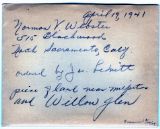 April 19, 1941
Norman V Webster
515 Blackwood
North Sacramento, Calif
owned by Jas.
price of land near
and Willow Glen